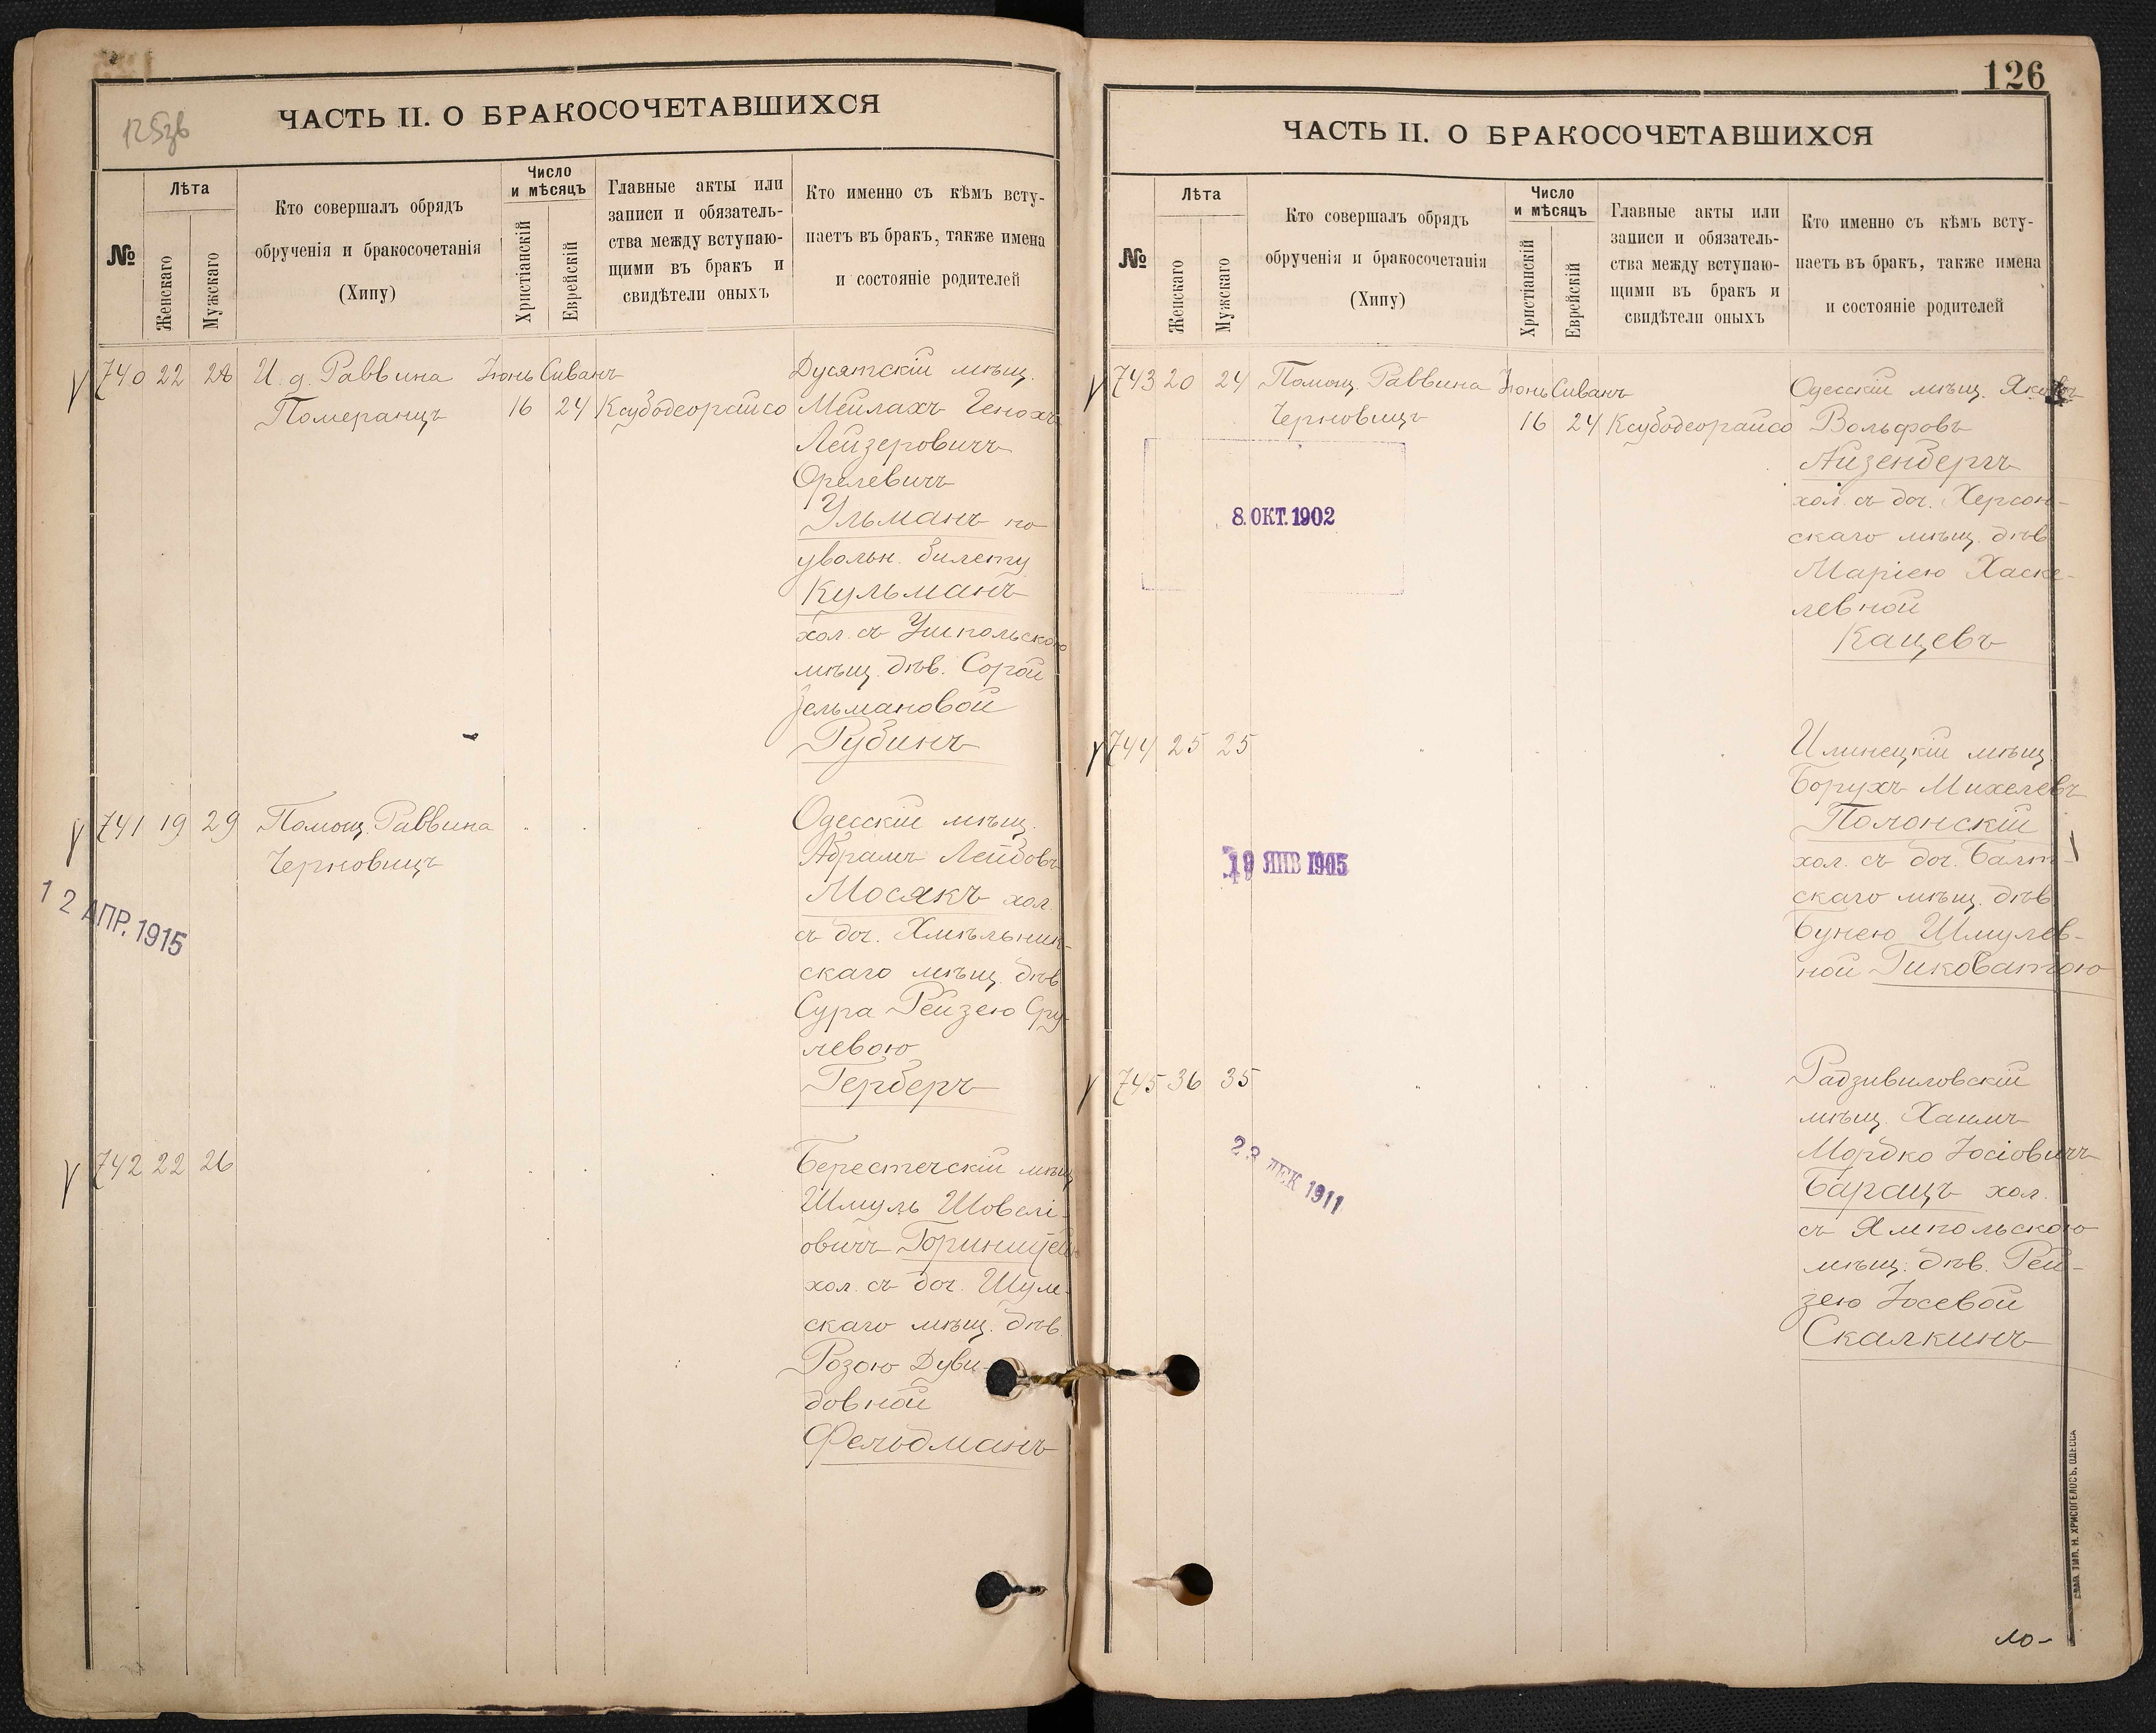 125зв
ЧАСТЬ II. О БРАКОСОЧЕТАВШИХСЯ
№
Лѣта
Женскаго
Мужскаго
Кто совершалъ обрядъ
обрученія и бракосочетанія
(Хипу)
Число
и мѣсяцъ
Христіанскій
Еврейскій
Главные акты или
записи и обязатель-
ства между вступаю-
щими въ бракъ и
свидѣтели оныхъ
Кто именно съ кѣмъ всту-
паетъ въ бракъ, также имена
и состояніе родителей
740 22 28 И. д. Раввина Іюнь Сиванъ Дусятскій мѣщ.
Померанцъ 16 24 Ксубодеорайсо Мейлахъ Генохъ
Лейзеровичъ
Орелевичъ
Ульманъ по
увольн. билету
Кульманъ
хол. съ Ушпольскою
мѣщ. дѣв. Сорой
Зельмановой
Рубинъ
741 19 29 Помощ. Раввина Одесскій мѣщ.
Черновицъ Абрамъ Лейбовъ
Мосякъ хол.
съ доч. Хмѣльник-
скаго мѣщ. дѣв.
Сура Рейзею Сру-
левою
Герберъ
12 АПР. 1915
742 22 26 Берестечскій мѣщ.
Шмуль Шовелі-
овичъ
хол. съ доч. Шум-
скаго мѣщ. дѣв.
Розою Дуви-
довной
Фельдманъ
126
ЧАСТЬ II. О БРАКОСОЧЕТАВШИХСЯ
№
Лѣта
Женскаго
Мужскаго
Кто совершалъ обрядъ
обрученія и бракосочетанія
(Хипу)
Число
и мѣсяцъ
Христіанскій
Еврейскій
Главные акты или
записи и обязатель-
ства между вступаю-
щими въ бракъ и
свидѣтели оныхъ
Кто именно съ кѣмъ всту-
паетъ въ бракъ, также имена
и состояніе родителей
743 20 24 Помощ. Раввина Іюнь Сиванъ Одесскій мѣщ.
Черновицъ 16 24 Ксубодеорайсо Вольфовъ
Айзенбергъ
хол. съ доч. Херсон-
скаго мѣщ. дѣв.
Маріею Хаске-
левной
Кацевъ
8. ОКТ. 1902
744 25 25 Илинецкій мѣщ.
Борухъ Михелевъ
Полонскій
хол. съ доч. Балт-
скаго мѣщ. дѣв.
Бунею Шмулев-
ной Гиковатою
19 ЯНВ 1905
745 36 35 Радзивиловскій
мѣщ. Хаимъ
Мордко Іосіовичъ
Барацъ хол.
съ Ямпольскою
мѣщ. дѣв. Рей-
зею Іосевой
Скалкинъ
23 ДЕК 1911
ТИП. Н. ХРИСОГЕЛОСЪ, ОДЕССА